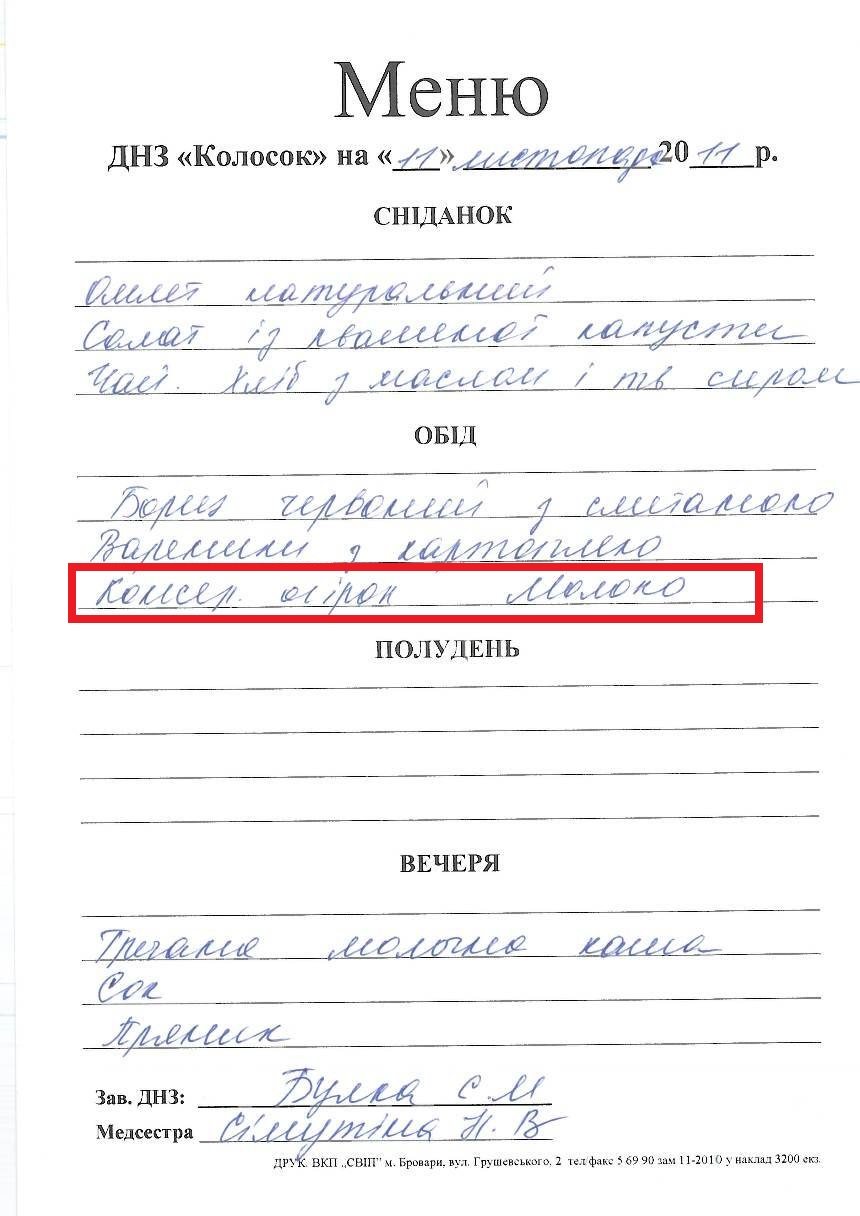 Меню
ДНЗ «Колосок» на «11» листопада 2011 р.
СНІДАНОК
Омлет натуральний
Салат із квашеної капусти
Чай. Хліб з маслом і тв сиром
ОБІД
Борщ червоний з сметаною
Вареники з картоплею
Консер. огірок Молоко
ПОЛУДЕНЬ
ВЕЧЕРЯ
Гречана молочна каша
Сок
Пряник
Зав. ДНЗ: Булка С.М
Медсестра Сімутіна Н. В
ДРУК. ВКП „СВІП" м. Бровари, вул. Грушевського, 2 тел/факс 5 69 90 зам 11-2010 у наклад 3200 екз.